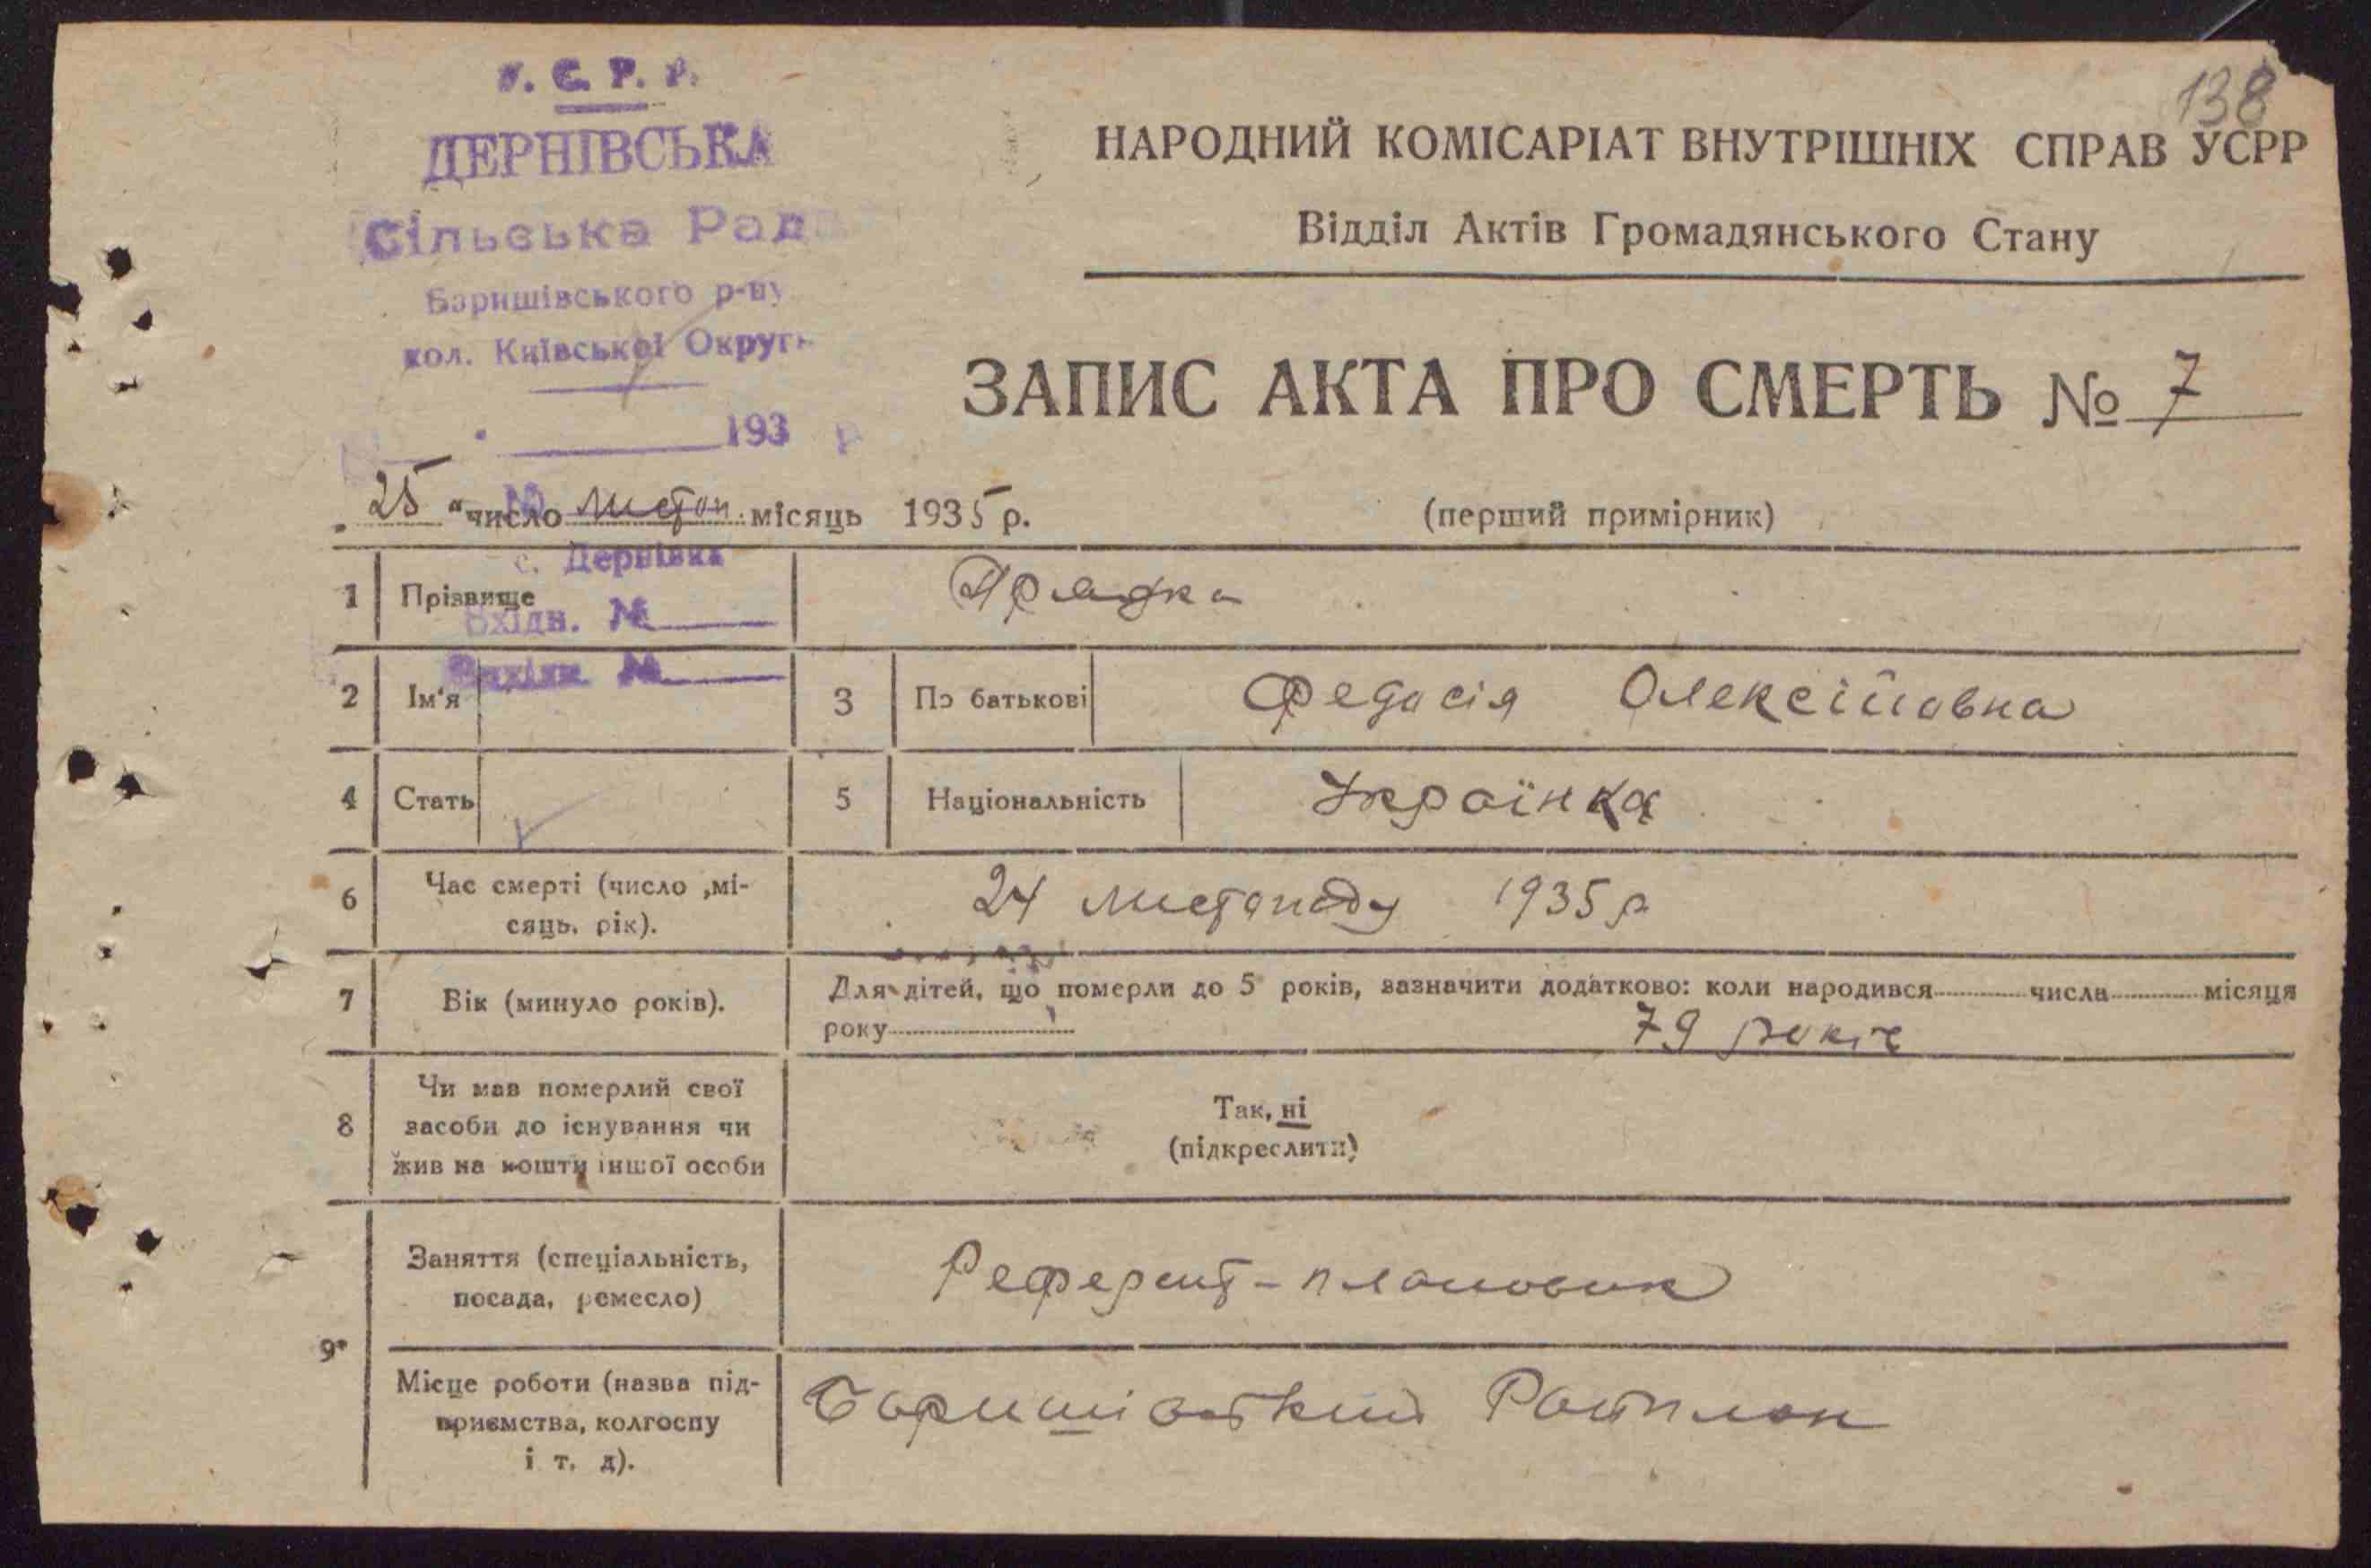 138
У. С. Р. Р.
ДЕРНІВСЬКА
Сільська Рада
Баришівського р-ну
кол. Київської Округи
193 р
НАРОДНИЙ КОМІСАРІАТ ВНУТРІШНІХ СПРАВ УСРР
Відділ Актів Громадянського Стану
ЗАПИС АКТА ПРО СМЕРТЬ № 7
„25“ число листоп. місяць 1935 р.
(перший примірник)
№
с. Дернівка
Вхідн. №
Вихідн. №
1 Прізвище
2 Ім'я 3 По батькові Федосія Олексійовна
4 Стать 5 Національність Українка
6 Час смерті (число ,мі-
сяць, рік).
24 листопаду 1935 р
7 Вік (минуло років).
Для дітей, що померли до 5 років, зазначити додатково: коли народився числа місяця
року 79 років
8 Чи мав померлий свої
засоби до існування чи
жив на кошти іншої особи
Так, ні
(підкреслити)
9 Заняття (спеціальність,
посада, ремесло)
Референт-плановик
Місце роботи (назва під-
приємства, колгоспу
і т. д).
Баришівський Райплан